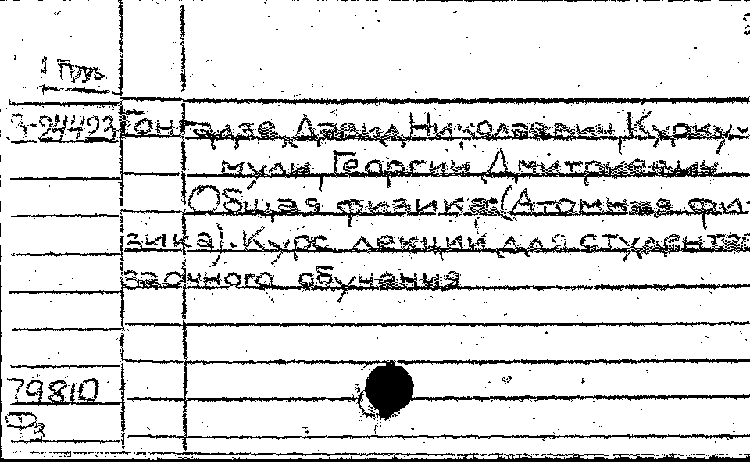 1 Груз
3-24493 Гонгадзе Давид Николаевич Курку-
мули Георгий Дмитриевич
Общая физика:(Атомная фи-
зика). Курс лекций для студентов
заочного обучания
79810
Фз